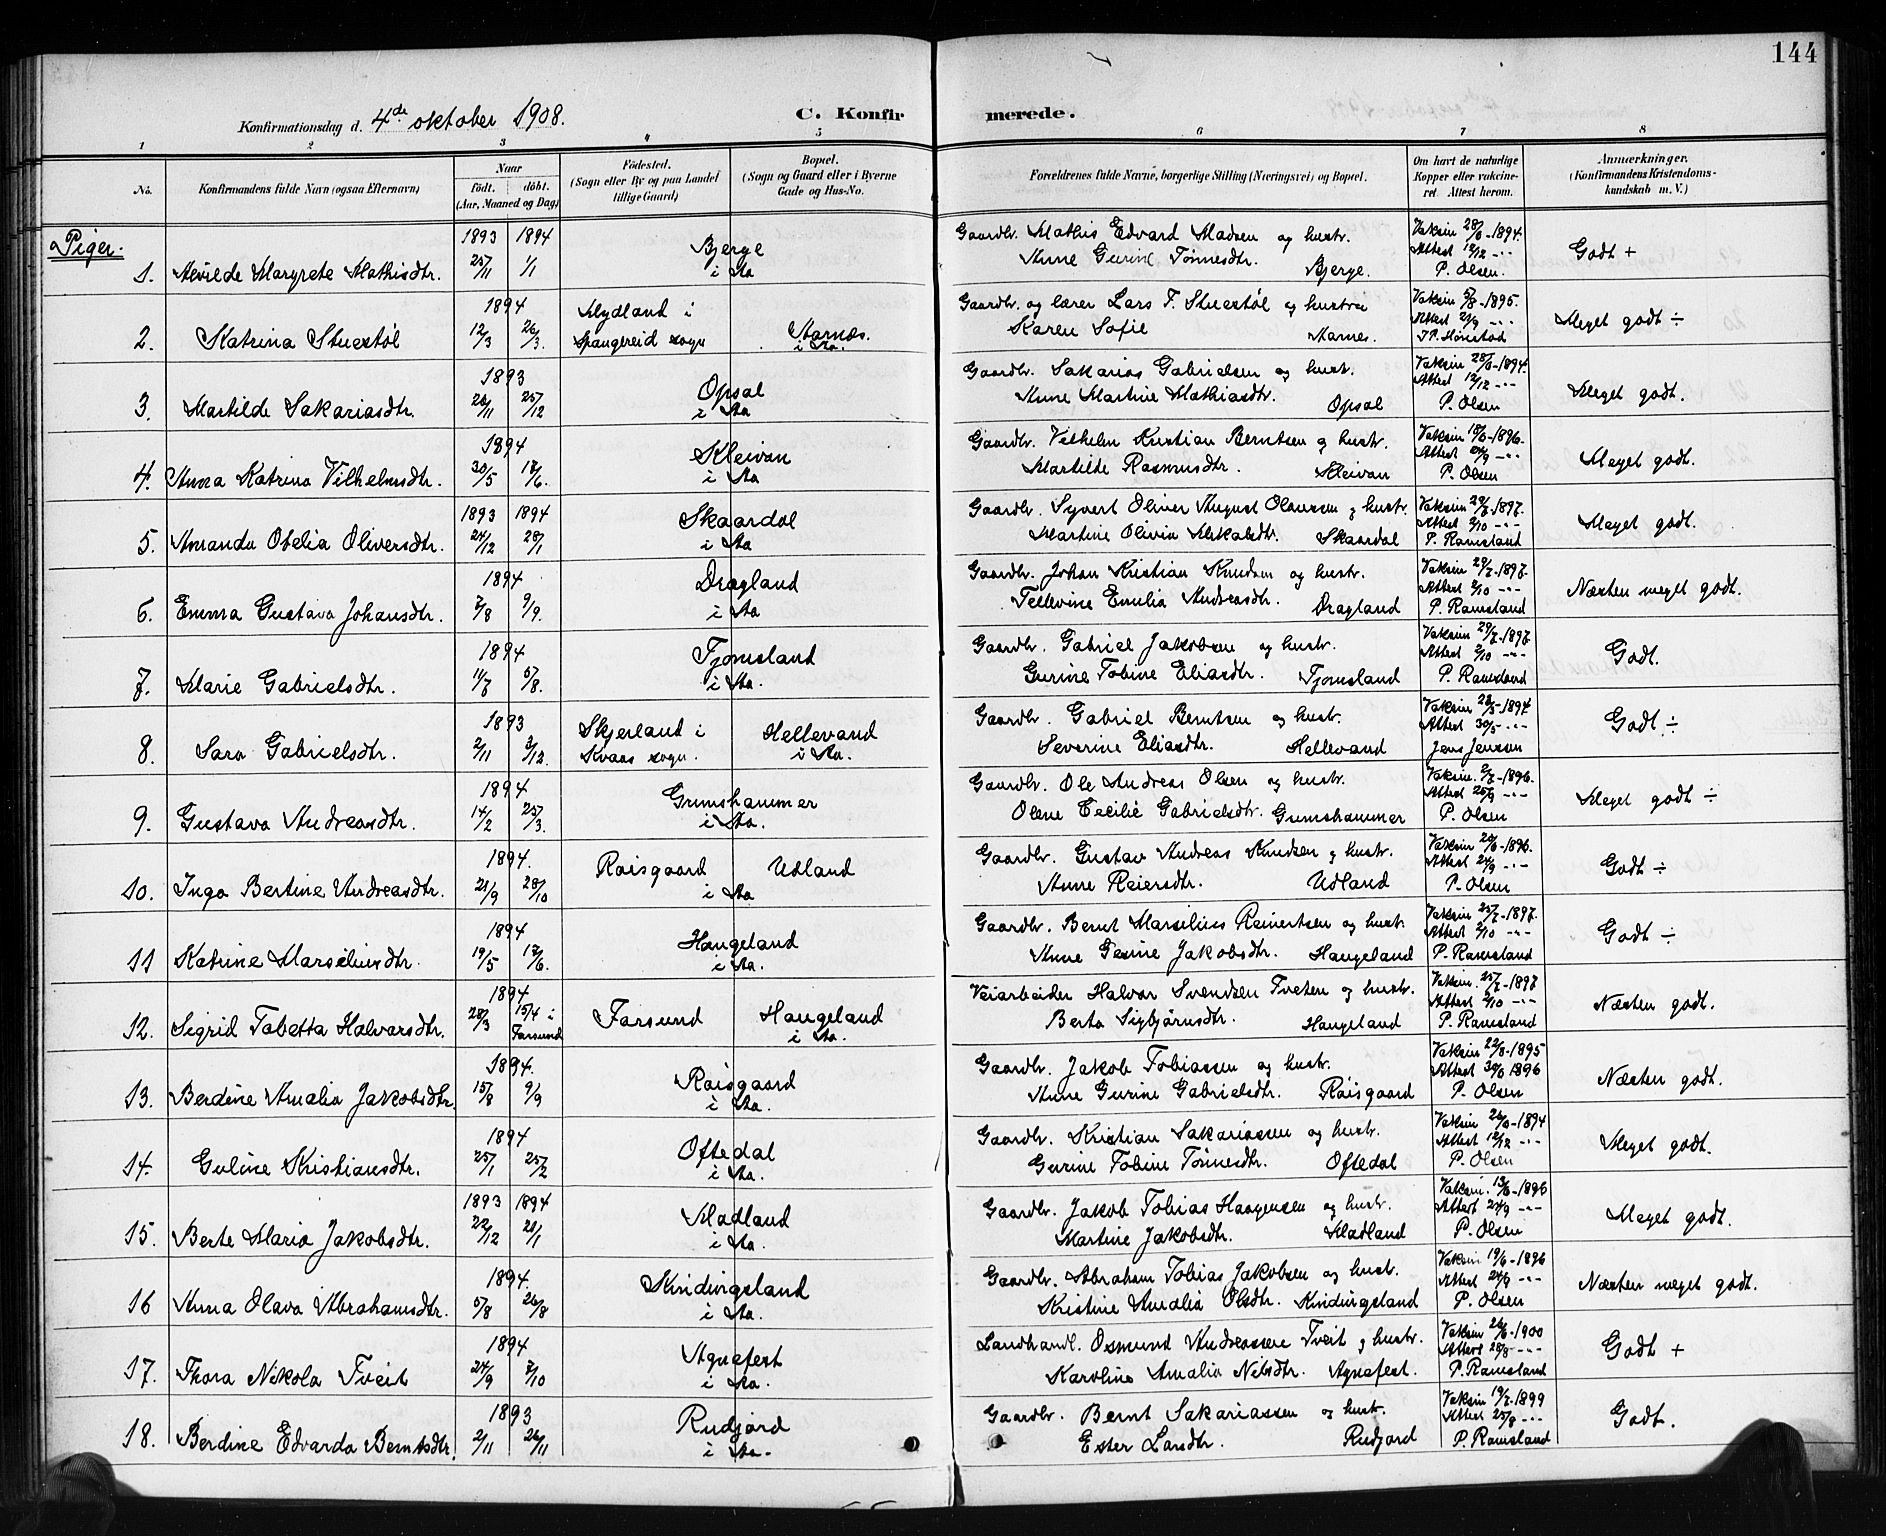 144
Konfirmationsdag d. 4de oktober 1908.
C. Konfirmerede.
1 2 3 4 5 6 7 8
No.
Konfirmandens fulde Navn (ogsaa Efternavn)
Naar
født. døbt.
(Aar, Maaned og Dag)
Fødested.
(Sogn eller By og paa Landet
tillige Gaard)
Bopæl.
(Sogn og Gaard eller i Byerne
Gade og Hus-No.
Forældrenes fulde Navne, borgerlige Stilling (Næringsvei) og Bopæl.
Om havt de naturlige
Kopper eller vakcine-
ret. Attest herom.
Anmærkninger.
(Konfirmandens Kristendoms-
kundskab m. V.)
Piger.
1893 1894 Bjerge Gaardbr. Mathis Edvard Madsen og hustr. Vaksin 28/6-1894.
1. Alvilde Margrete Mathisdtr. 25/11 1/1 i Aa Anne Gurine Tønnesdtr. Bjerge. Attest 12/12 -"- P. Olsen. Godt +
1894 Mydland i Gaardbr. og lærer Lars F. Stuestøl og hustru Vaksin 5/8-1895.
2. Katrina Stuestøl 12/3 26/3. Spangereid sogn Aarnes. i Aa. Karen Sofie Aarnes. Attest 21/9 -"- Meget godt ÷
1893 Opsal Gaardbr. Sakarias Gabrielsen og hustr. Vaksin 28/6-1894.
3. Martilde Sakariasdtr. 26/11 25/12 i Aa Anne Martine Mathiasdtr. Opsal Attest 12/12 -"- P. Olsen Meget godt.
1894 Kleivan Gaardbr. Vilhelm Kristian Berntsen og hustr. Vaksin 18/6-1896.
4. Anna Katrina Vilhelmsdtr. 30/5 17/6. i Aa Martilde Rasmusdtr. Kleivan Attest 24/9 -"- P. Olsen Meget godt.
1893 1894 Skaardal Gaardbr. Syvert Oliver August Olausen og hustr. Vaksin 29/7-1897.
5. Amanda Obelia Oliversdtr. 24/12 28/1 i Aa Martine Olivia Mikalsdtr. Skaardal Attest 2/10 -"- P. Ramsland Meget godt.
1894 Dragland Gaardbr. Johan Kristian Knudsen og hustr. Vaksin 29/7-1897.
6. Emma Gustava Johansdtr. 7/8 9/9. i Aa Tellevine Emilia Andreasdtr. Dragland Attest 2/10 -"- P. Ramsland Næsten meget godt.
1894 Tjomsland Gaardbr. Gabriel Jakobsen og hustr. Vaksin 29/7-1897
7. Marie Gabrielsdtr. 11/7 5/8. i Aa. Gurine Tobine Eliasdtr. Tjomsland Attest 2/10 -"- P. Ramsland Godt.
1893 Skjerland i Hellevand Gaardbr. Gabriel Berntsen og hustr. Vaksin 22/5-1894
8. Sara Gabrielsdtr. 2/11 3/12. Kvaas sogn. i Aa. Severine Eliasdtr. Hellevand Attest 30/5 -"- Jens Jensen Godt ÷
1894 Grimshammer Gaardbr. Ole Andreas Olsen og hustr. Vaksin. 2/7-1896.
9. Gustava Andreasdtr. 14/2 25/3. i Aa. Olene Cecilie Gabrielsdtr. Gumshammer Attest 25/9 -"- P. Olsen Meget godt ÷
1894. Røisgaard Udland Gaardbr. Gustav Andreas Knudsen og hustr. Vaksin 20/6-1896.
10. Inga Bertine Andreasdtr. 21/9 28/10 i Aa Anne Reiersdtr. Udland Attest 24/9 -"- P. Olsen Godt ÷
1894 Haugeland Gaardbr. Bernt Marselius Reinertsen og hustr. Vaksin 25/7-1897.
11 Katrine Marseliusdtr. 19/5 17/6. i Aa. Anne Gesine Jakobsdtr. Haugeland Attest 2/10 -"- P. Ramsland Godt ÷
1894 Veiarbeider Halvor Svendsen Tveten og hustr. Vaksin. 25/7-1897
12. Sigrid Tabetta Halvorsdtr. 28/3 15/4 i Farsund Farsund Haugeland i Aa. Berta Sigbjørnsdtr. Haugeland Attest 2/10 -"- P. Ramsland Næsten godt.
1894. Røisgaard Gaardbr. Jakob Tobiassen og hustr. Vaksin 22/8-1895
13. Berdine Amalia Jakobsdtr. 15/8 9/9 i Aa. Anne Gurine Gabrielsdtr. Røisgaard Attest 30/6 1896 P. Olsen Næsten godt.
1894 Oftedal Gaardbr. Kristian Sakariassen og hustr. Vaksin 26/6-1894
14. Guline Kristiansdtr. 25/1 25/2 i Aa. Gurine Tobine Tønnesdtr. Oftedal Attest 12/12 -"- P. Olsen Meget godt.
1893 1894 Madland Gaardbr. Jakob Tobias Haagensen og hustr. Vaksin. 13/6-1896
15. Berte Maria Jakobsdtr. 22/12 21/1 i Aa. Martine Jakobsdtr. Madland Attest 24/9 -"- P. Olsen Meget godt.
1894. Kindingsland Gaardbr. Abraham Tobias Jakobsen og hustr. Vaksin 19/6-1896
16 Anna Olava Abrahamsdtr. 5/8 26/8 i Aa. Kristine Amalia Olsdtr. Kindingsland Attest 24/9 -"- P. Olsen Næsten meget godt.
1894 Agnefest Landhandl. Osmund Andreassen Tveit og hustr. Vaksin 26/6-1900
17. Thora Nikola Tveit 24/9 7/10 i Aa. Karoline Amalia Nilsdtr. Agnefest. Attest 28/8 -"- P. Ramsland Godt +
1893 Rudjord Gaardbr. Bernt Sakariassen og hustr. Vaksin 19/7-1899
18. Berdine Edvarda Berntsdtr. 2/11 26/11 i Aa. Ester Larsdtr. Rudjord Attest 25/8 -"- P. Ramsland Godt.